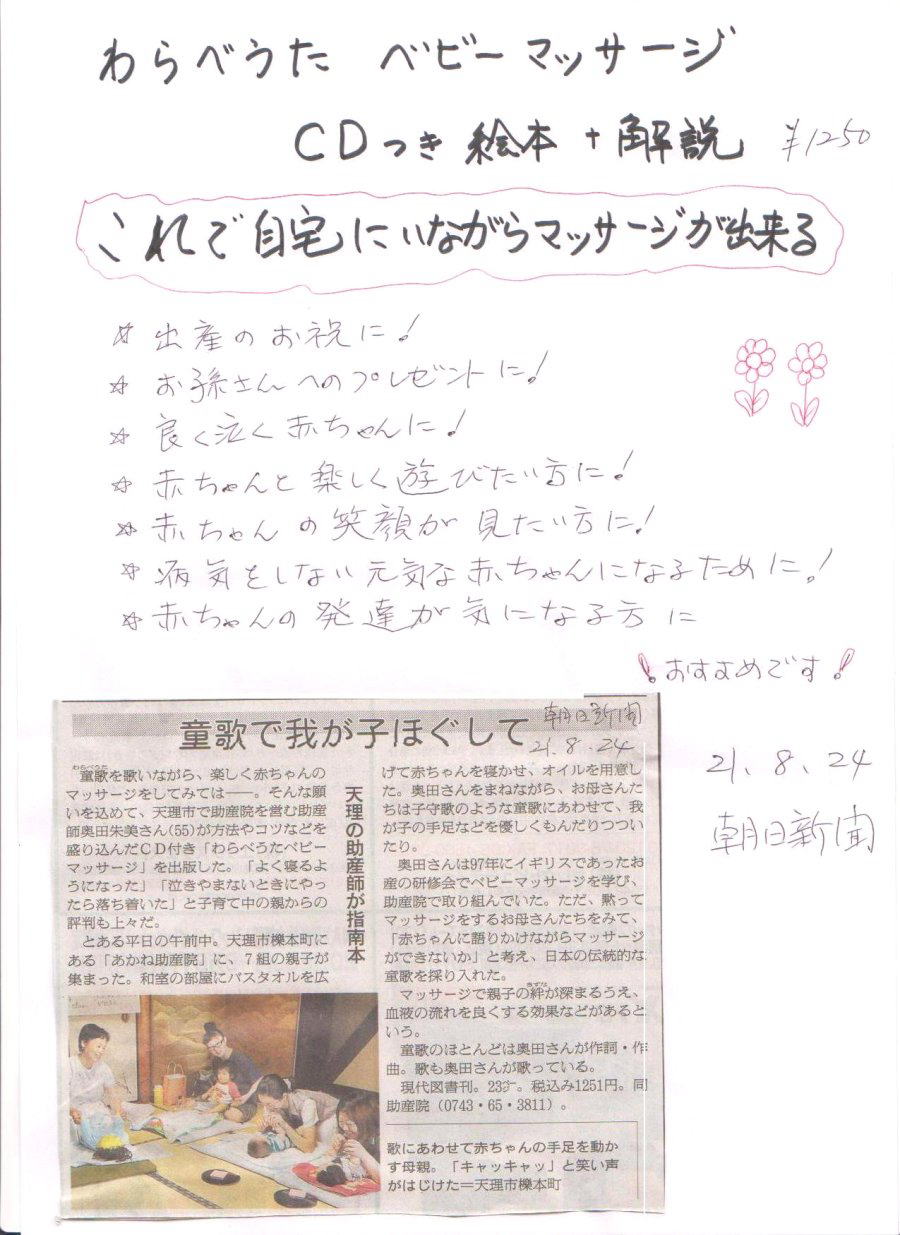 わらべうた ベビーマッサージ
CDつき 絵本 + 解説 ¥1250
これで自宅にいながらマッサージが出来る
☆ 出産のお祝に!
☆ お孫さんへのプレゼントに!
☆ 良く泣く赤ちゃんに!
☆ 赤ちゃんと楽しく遊びたい方に!
☆ 赤ちゃんの笑顔が見たい方に!
☆ 病気をしない元気な赤ちゃんになるために!
☆ 赤ちゃんの発達が気になる方に
!おすすめです!
21、8、24
朝日新聞
童歌で我が子ほぐして
朝日新聞
21.8.24
天理の助産師が指南本
わらべうた
童歌を歌いながら、楽しく赤ちゃんの
マッサージをしてみては――。そんな願
いを込めて、天理市で助産院を営む助産
師奥田朱美さん(55)が方法やコツなどを
盛り込んだCD付き「わらべうたベビー
マッサージ」を出版した。「よく寝るよ
うになった」「泣きやまないときにやっ
たら落ち着いた」と子育て中の親からの
評判も上々だ。
とある平日の午前中。天理市櫟本町に
ある「あかね助産院」に、7組の親子が
集まった。和室の部屋にバスタオルを広
げて赤ちゃんを寝かせ、オイルを用意し
た。奥田さんをまねながら、お母さんた
ちは子守歌のような童歌にあわせて、我
が子の手足などを優しくもんだりつつい
たり。
奥田さんは97年にイギリスであったお
産の研修会でベビーマッサージを学び、
助産院で取り組んでいた。ただ、黙って
マッサージをするお母さんたちをみて、
「赤ちゃんに語りかけながらマッサージ
ができないか」と考え、日本の伝統的な
童歌を採り入れた。
きずな
マッサージで親子の絆が深まるうえ、
血液の流れを良くする効果などがあると
いう。
童歌のほとんどは奥田さんが作詞・作
曲。歌も奥田さんが歌っている。
現代図書刊。23㌻。税込み1251円。同
助産院(0743・65・3811)。
歌にあわせて赤ちゃんの手足を動か
す母親。「キャッキャッ」と笑い声
がはじけた=天理市櫟本町